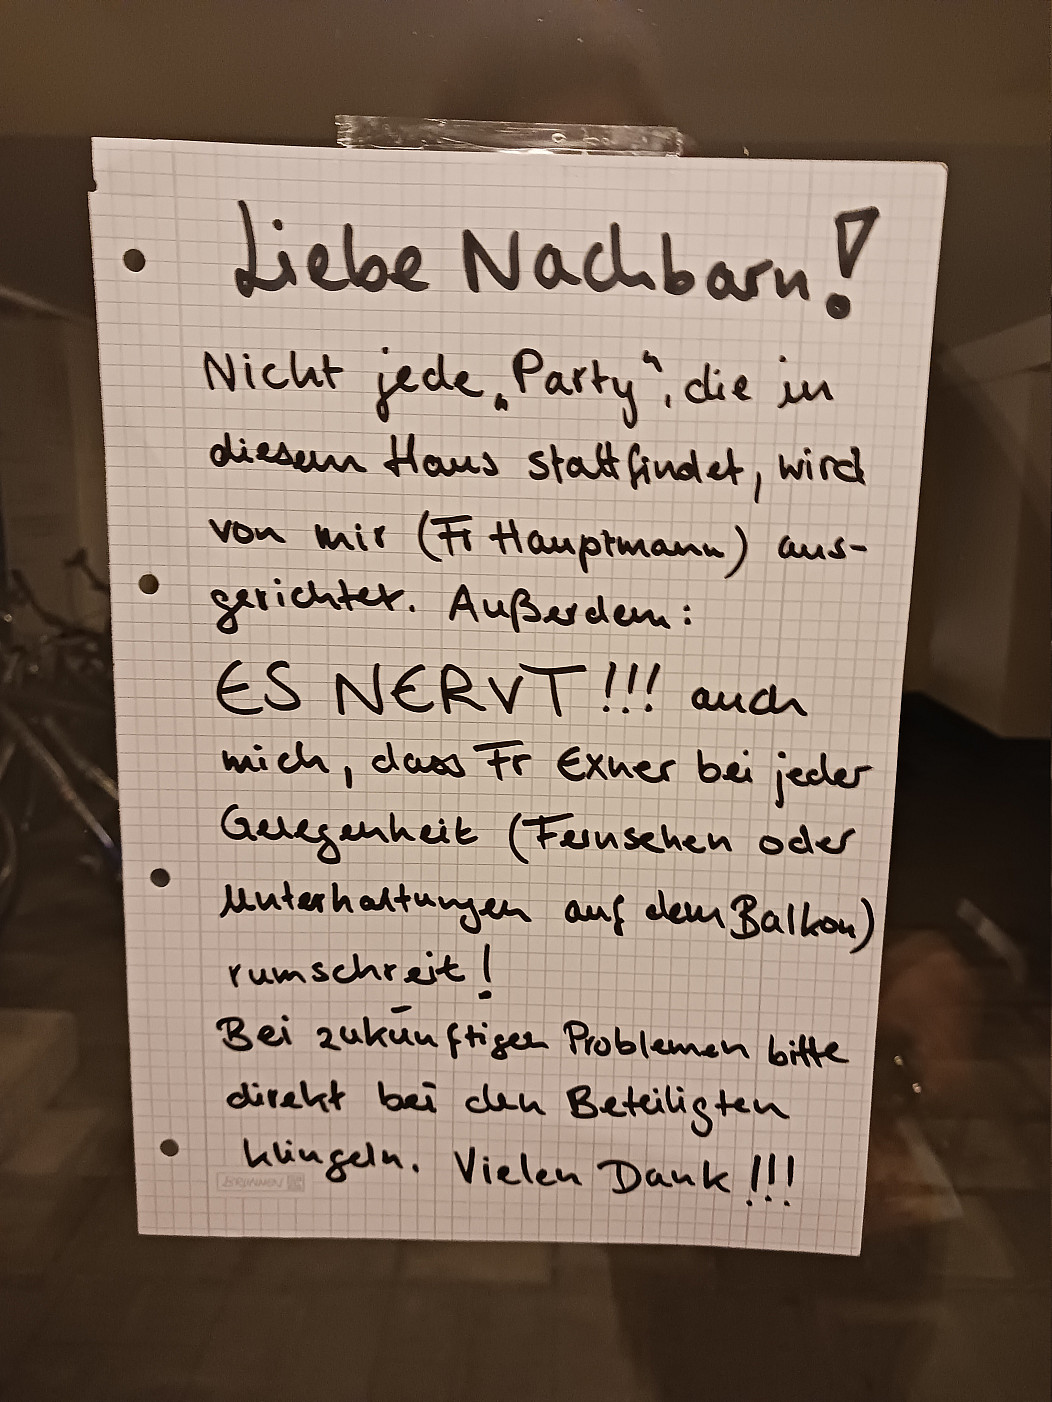 Liebe Nachbarn!
Nicht jede „Party“, die in
diesem Haus stattfindet, wird
von mir (Fr Hauptmann) aus-
gerichtet. Außerdem:
ES NERVT!!! auch
mich, dass Fr Exner bei jeder
Gelegenheit (Fernsehen oder
Unterhaltungen auf dem Balkon)
rumschreit!
Bei zukünftigen Problemen bitte
direkt bei den Beteiligten
klingeln. Vielen Dank!!!
BRUNNEN